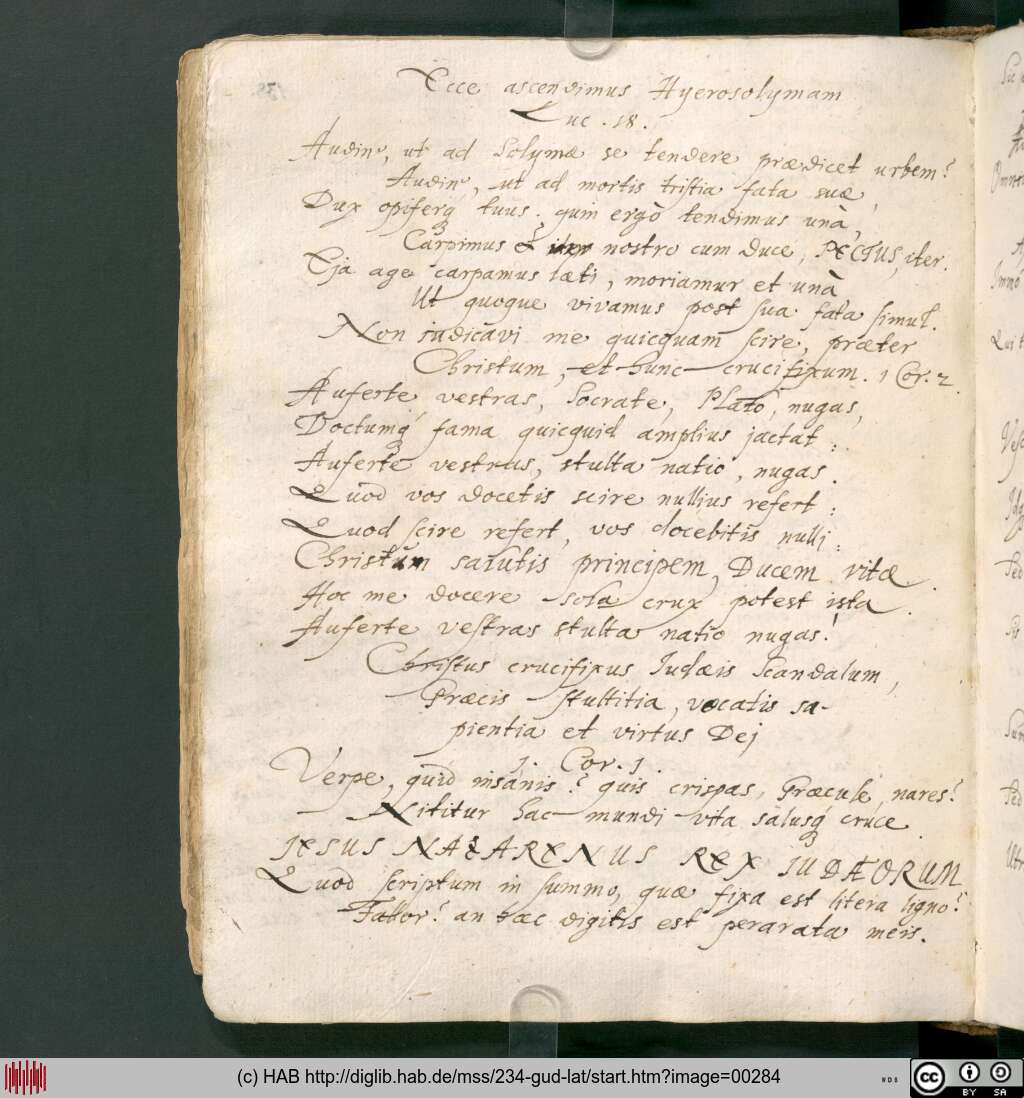 Ecce ascendimus Hyerosolymam
Luc. 18.
Audin', ut ad Solymæ se tendere prædicet urbem?
Audin', ut ad mortis tristia fata suæ,
Dux opiferq́; tuus. quin ergò tendimus unà,
Carpimus et nostro cum duce, PECTUS, iter.
Eja age carpamus læti, moriamur et unà
Ut quoque vivamus post sua fata simul.
Non judicavi me quicquam scire, præter
Christum, et hunc crucifixum. 1 Cor. 2.
Auferte vestras, Socrate, Plato, nugas,
Doctumq́; fama quicquid amplius jactat:
Auferte vestras, stulta natio, nugas.
Quod vos docetis scire nullius refert:
Quod scire refert, vos docebitis nulli:
Christum salutis principem, Ducem vitæ.
Hoc me docere sola crux potest ista.
Auferte vestras stulta natio nugas!
Christus crucifixus Judæis Scandalum,
Græcis stultitia, vocatis sa-
pientia et virtus Dej
1. Cor. 1.
Verpe, quid insanis? quis crispas, Græcule, nares?
Nititur hac mundi vita salusq́; cruce.
JESUS NAZARENUS REX JUDÆORUM
Quod scriptum in summo, quæ fixa est litera ligno?
Fallor? an hæc digitis est perarata meis.
(c) HAB http://diglib.hab.de/mss/234-gud-lat/start.htm?image=00284
cc BY SA